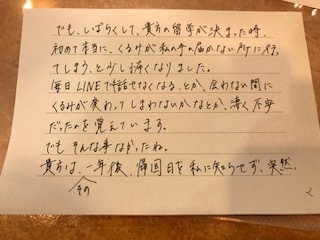 でも、しばらくして、貴方の留学が決まった時、
初めて本当に、くるみが私の手の届かない所に行って
しまう、と少し怖くなりました。
毎日LINEで話せなくなる、とか、会わない間に
くるみが変わってしまわないかなとか、凄く不安
だったのを覚えています。
でも そんな事なかったね。
貴方は、その一年後、帰国日を私に知らせず、突然、